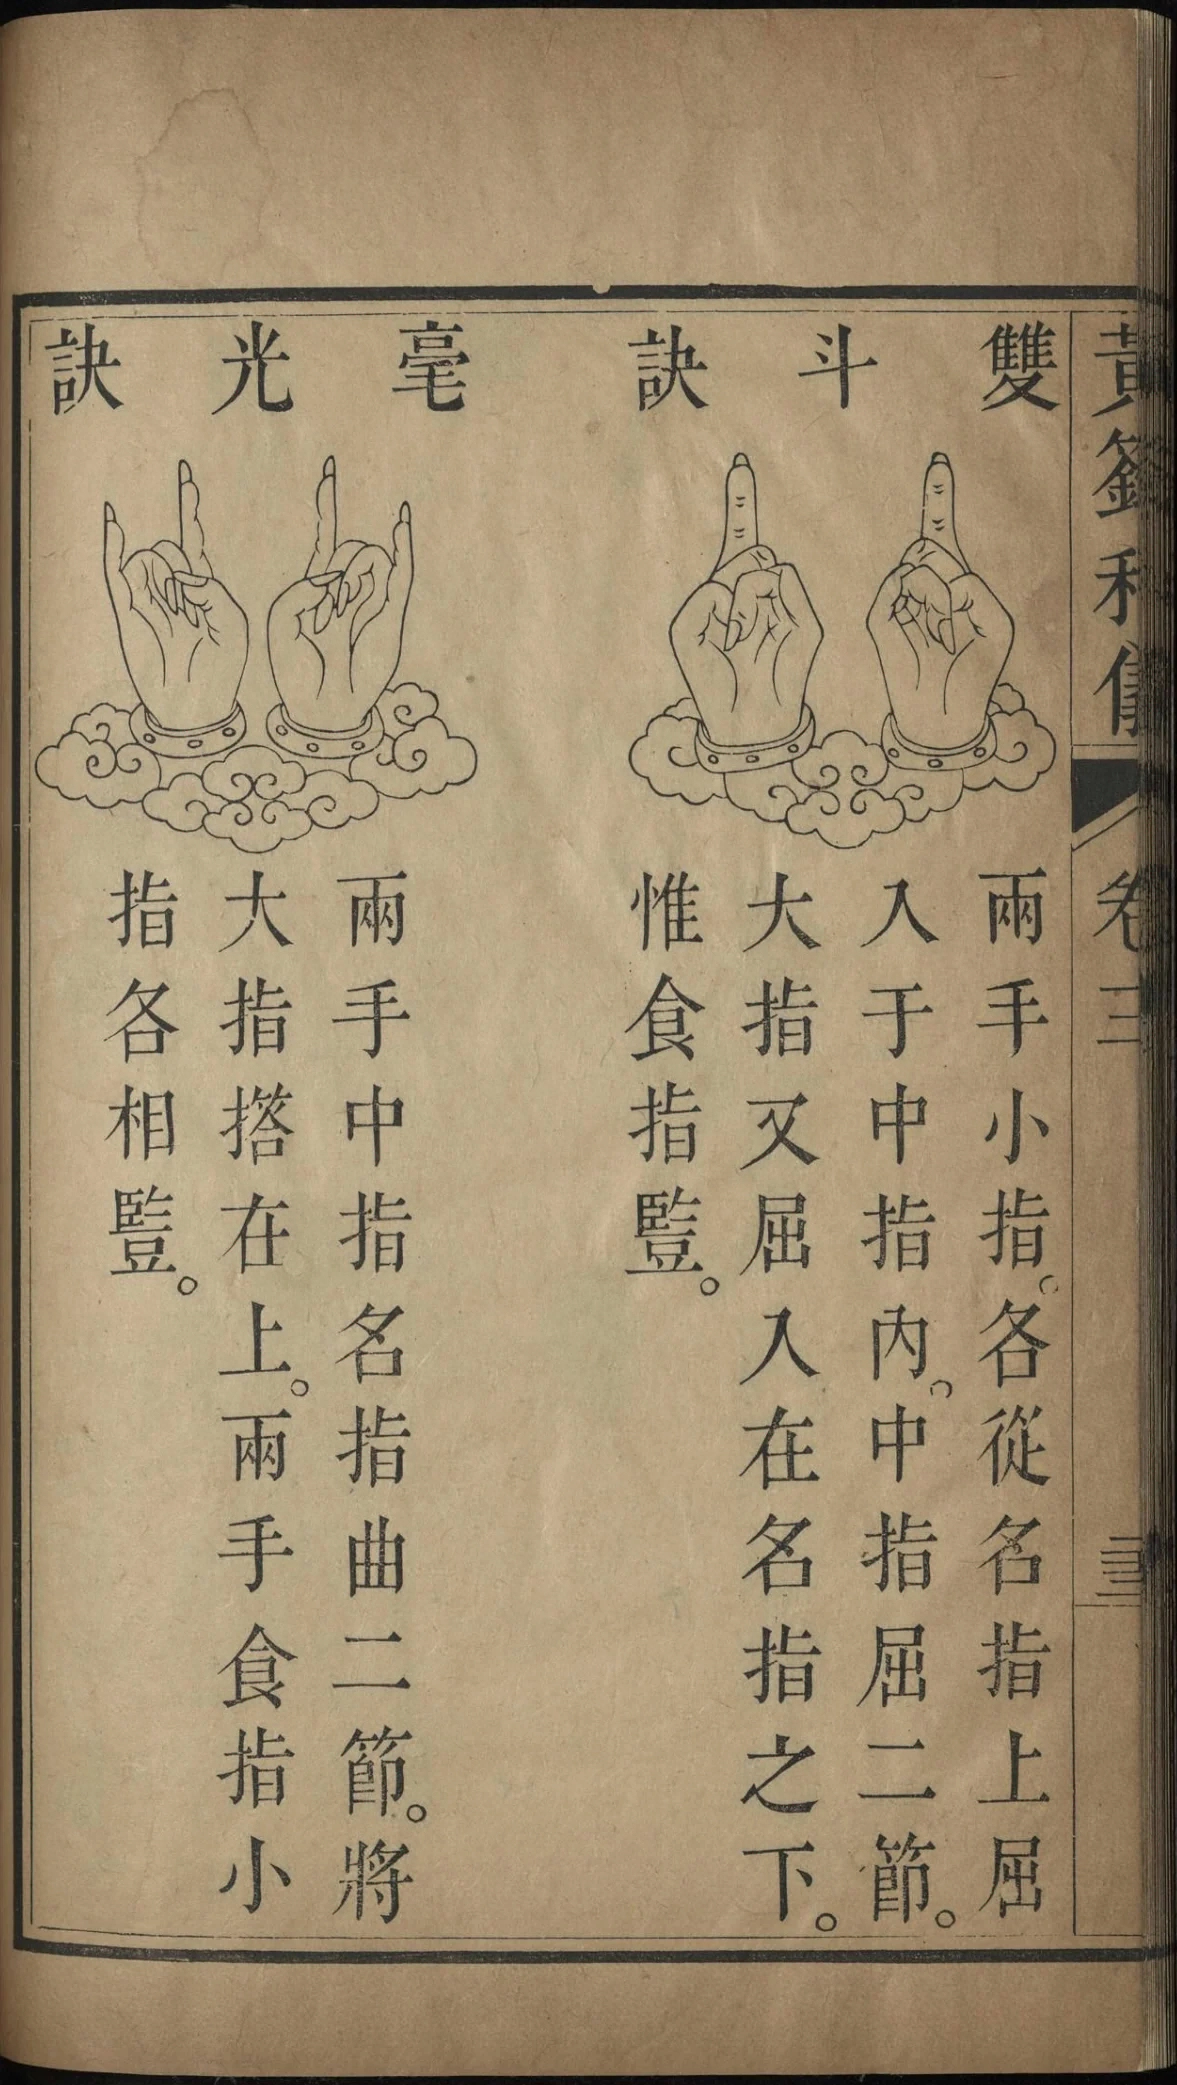 黃籙科儀
卷三
雙斗訣
兩手小指。各從名指上屈
入于中指內。中指屈二節。
大指又屈入在名指之下。
惟食指豎。
毫光訣
兩手中指名指曲二節。將
大指撘在上。兩手食指小
指各相豎。